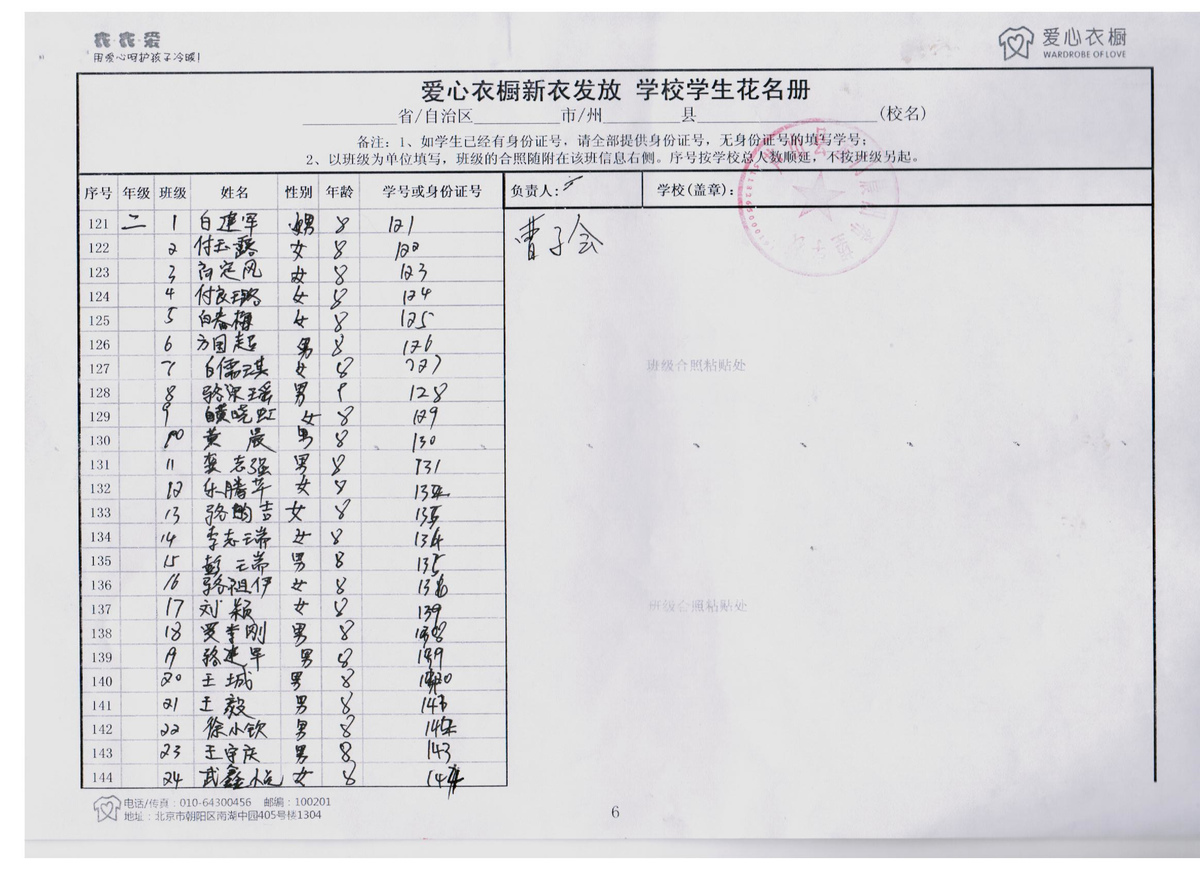 衣衣爱
用爱心呵护孩子冷暖!
爱心衣橱
WARDROBE OF LOVE
爱心衣橱新衣发放 学校学生花名册
省/自治区 市/州 县 (校名)
备注：1、如学生已经有身份证号，请全部提供身份证号，无身份证号的填写学号；
2、以班级为单位填写，班级的合照随附在该班信息右侧。序号按学校总人数顺延，不按班级另起。
序号 年级 班级 姓名 性别 年龄 学号或身份证号 负责人： 学校(盖章)：
曹子会
121 二 1 白建军 男 8 121
122 2 付玉露 女 8 122
123 3 向定风 女 8 123
124 4 付良璐 女 8 124
125 5 白春梅 女 8 125
126 6 方国超 男 8 126
127 7 白儒琪 女 8 127
班级合照粘贴处
128 8 骆宋瑶 男 9 128
129 9 黄晓虹 女 8 129
130 10 黄晨 男 8 130
131 11 栾志强 男 8 131
132 12 乐腾苹 女 8 132
133 13 骆 吉 女 8 133
134 14 李志瑞 女 8 134
135 15 彭玉瑞 男 8 135
136 16 骆祖伊 女 8 136
137 17 刘颖 女 8 139
班级合照粘贴处
138 18 贾李刚 男 8 138
139 19 骆建军 男 8 139
140 20 王城 男 8 140
141 21 王毅 男 8 141
142 22 徐小钦 男 8 142
143 23 王守庆 男 8 143
144 24 武鑫 女 8 144
电话/传真：010-64300456 邮编：100201
地址：北京市朝阳区南湖中园405号楼1304
6